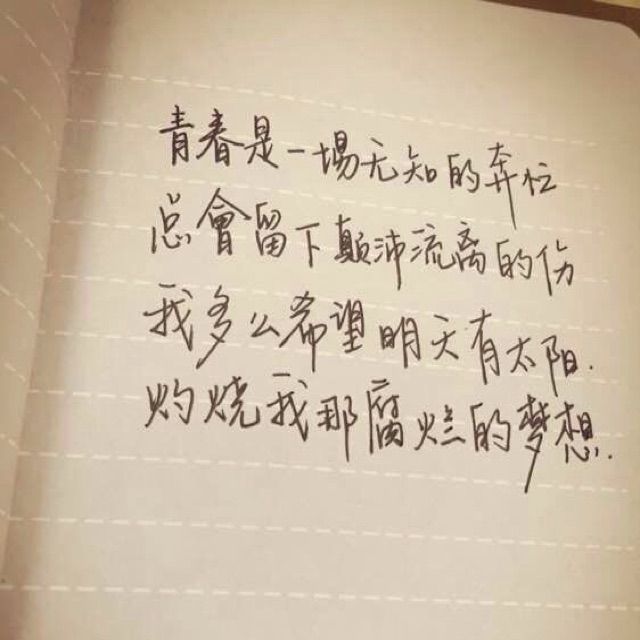 青春是一場无知的奔忙
总會留下颠沛流离的伤
我多么希望明天有太阳.
灼烧我那腐烂的梦想.